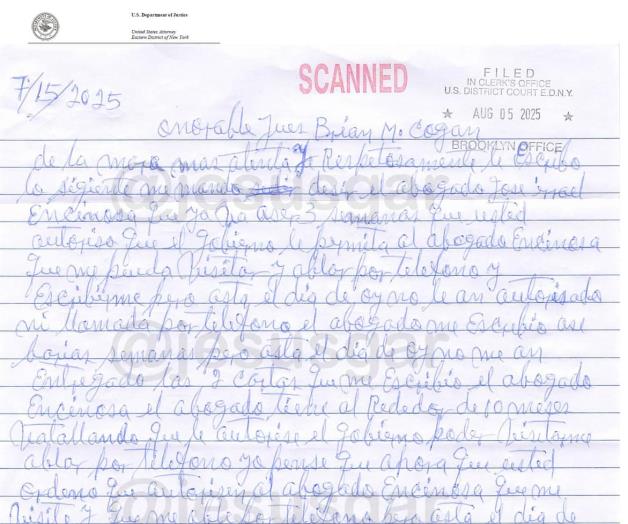 U.S. Department of Justice
United States Attorney
Eastern District of New York
SCANNED
FILED
IN CLERK'S OFFICE
U.S. DISTRICT COURT E.D.N.Y.
★ AUG 05 2025 ★
BROOKLYN OFFICE
7/15/2025
onorable Jues Brian M. Cogan
de la mas alenta y Respetosamente le Escribo
lo sigiente me mando desir el abogado Jose
Encinosa que ya va aser 3 semanas que usted
autoriso que el gobierno le permita al abogado Encinosa
que me pueda Visitar y ablar por telefono y
Escribirme pero asta el dia de oy no le an autorisado
ni llamada por telefono el abogado me Escribio ase
barias semanas pero asta el dia de oy no me an
Entregado las 2 cartas que me Escribio el abogado
Encinosa el abogado tiene al Rededor de 10 meses
Vatallando que le autorise el gobierno poder Visitarme
ablar por telefono yo pense que ahora que usted
ordeno que autorisen al abogado Encinosa que me
Visite y que me able por telefono pero asta el dia de
@jesusgar
@jesusgar
@jesusgar